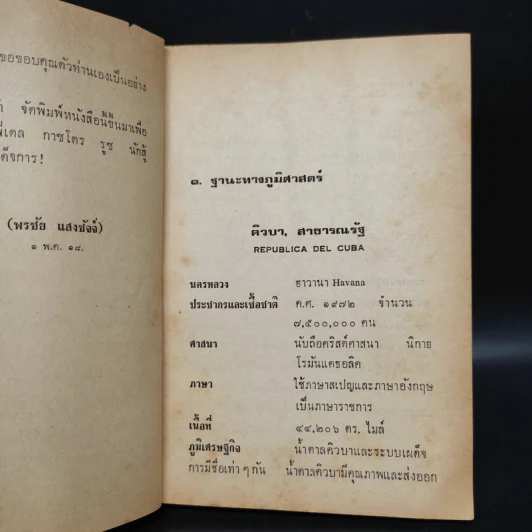 ขอขอบคุณตัวท่านเองเป็นอย่าง
จัดพิมพ์หนังสือนี้ขึ้นมาเพื่อ
กาซโตร รูซ นักสู้
ด็จการ!
(พรชัย แสงชัจจ์)
๑ พ.ค. ๑๘.
๑. ฐานะทางภูมิศาสตร์
คิวบา, สาธารณรัฐ
REPUBLICA DEL CUBA
นครหลวง ฮาวานา Havana
ประชากรและเชื้อชาติ ค.ศ. ๑๙๗๒ จำนวน
๗,๕๐๐,๐๐๐ คน
ศาสนา นับถือคริสต์ศาสนา นิกาย
โรมันแคธอลิค
ภาษา ใช้ภาษาสเปญและภาษาอังกฤษ
เป็นภาษาราชการ
เนื้อที่ ๔๔,๒๐๖ ตร. ไมล์
ภูมิเศรษฐกิจ น้ำตาลคิวบาและระบบเผด็จ
การมีชื่อเท่า ๆ กัน น้ำตาลคิวบามีคุณภาพและส่งออก